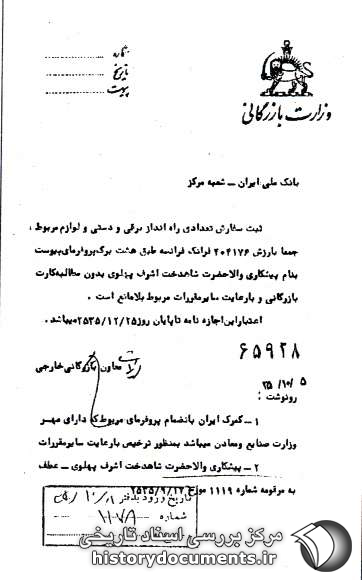 شماره
تاریخ
پیوست
وزارت بازرگانی
بانک ملی ایران ــ شعبه مرکز
ثبت سفارش تعدادی راه انداز برقی و دستی و لوازم مربوط ،
جمعا بارزش ۲۰۴۱۷۶ فرانک فرانسه طبق هشت برگ پروفرمای پیوست
بنام پیشکاری والاحضرت شاهدخت اشرف پهلوی بدون مطالبه کارت
بازرگانی و بارعایت سایر مقررات مربوط بلامانع است .
اعتبار این اجازه نامه تا پایان روز ۲۵۳۵/۱۲/۲۵ میباشد .
۶۵۹۲۸
معاون بازرگانی خارجی
۳۵/۱۰/۵
رونوشت :
۱ ــ گمرک ایران بانضمام پروفرمای مربوط که دارای مهر
وزارت صنایع ومعادن میباشد بمنظور ترخیص بارعایت سایر مقررات
۲ ــ پیشکاری والاحضرت شاهدخت اشرف پهلوی ــ عطف
به مرقومه شماره ۱۱۱۹ مورخ ۲۵۳۵/۹/۲۷
تاریخ ورود بدفتر
شماره ۱۱۰۷۸
مرکز بررسی اسناد تاریخی
historydocuments.ir